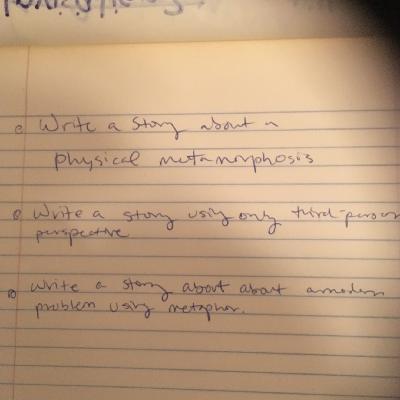 Write a story about a
physical metamorphosis
Write a story using only third-person
perspective
Write a story about about a modern
problem using metaphor.